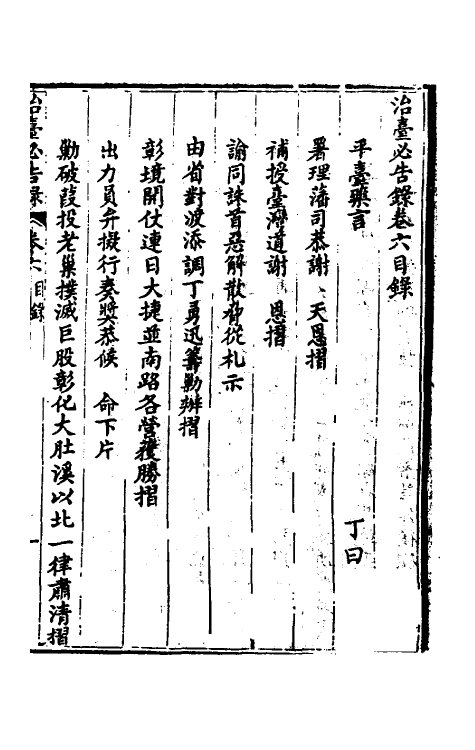 治臺必告錄卷六目錄
平臺藥言
丁曰
署理藩司恭謝 天恩摺
補授臺灣道謝 恩摺
諭同誅首惡解散脅從札示
由省對渡添調丁勇迅籌勦辦摺
彰境開仗連日大捷並南路各營獲勝摺
出力員弁擬行奏獎恭候 命下片
勦破葭投老巢撲滅巨股彰化大肚溪以北一律肅清摺
治臺必告錄 卷六 目錄 一